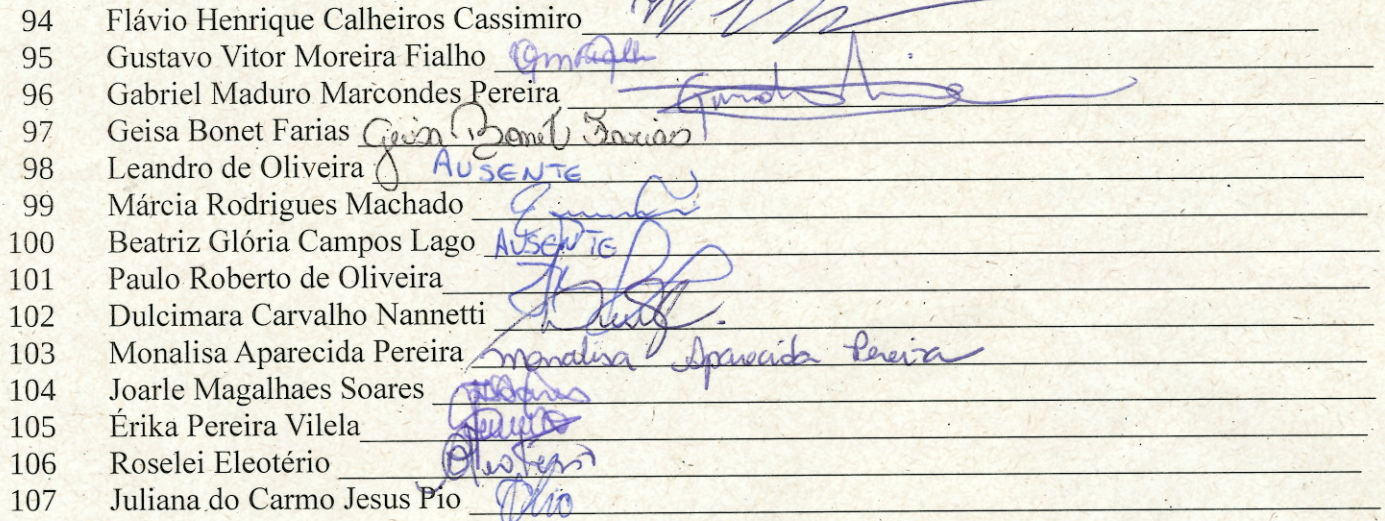 94 Flávio Henrique Calheiros Cassimiro
95 Gustavo Vitor Moreira Fialho
96 Gabriel Maduro Marcondes Pereira
97 Geisa Bonet Farias Geisa Bonet Farias
98 Leandro de Oliveira AUSENTE
99 Márcia Rodrigues Machado
100 Beatriz Glória Campos Lago AUSENTE
101 Paulo Roberto de Oliveira
102 Dulcimara Carvalho Nannetti
103 Monalisa Aparecida Pereira Monalisa Aparecida Pereira
104 Joarle Magalhaes Soares
105 Érika Pereira Vilela
106 Roselei Eleotério
107 Juliana do Carmo Jesus Pio